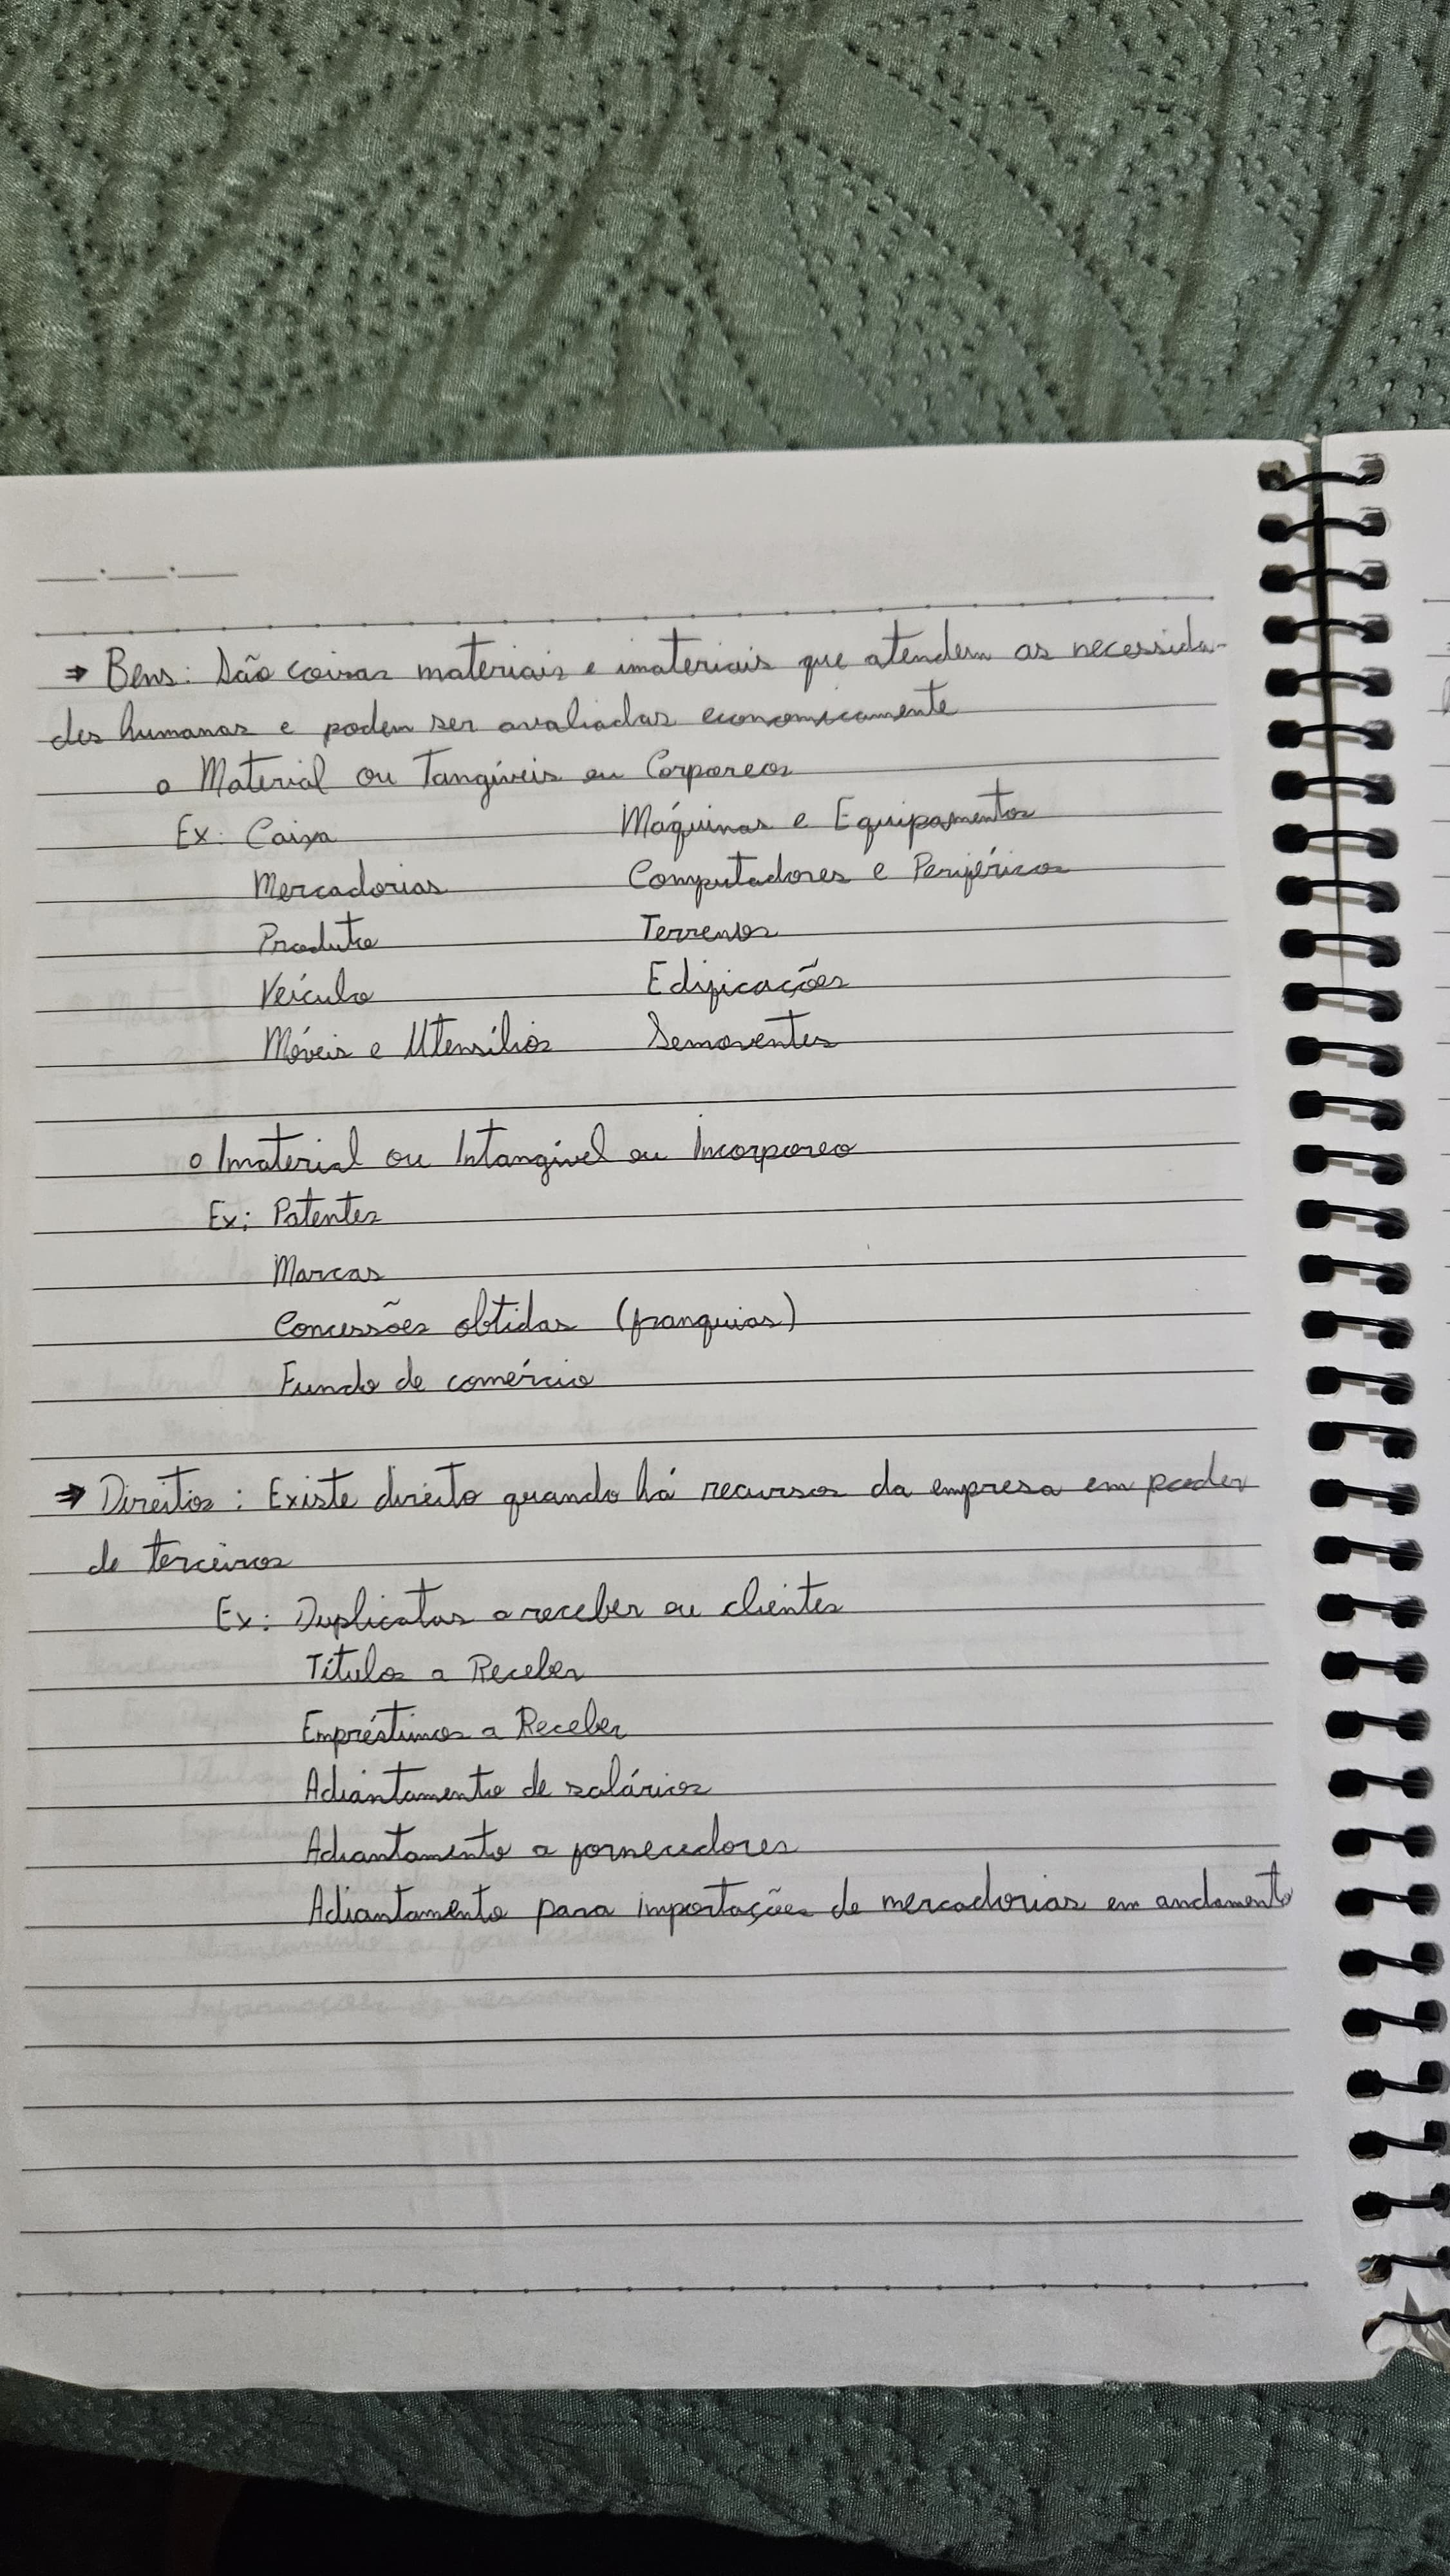 ⇒ Bens: São coisas materiais e imateriais que atendem as necessida-
des humanas e podem ser avaliadas economicamente
o Material ou Tangíveis ou Corporeos
Ex: Caixa Máquinas e Equipamentos
Mercadorias Computadores e Periféricos
Produto Terrenos
Veículo Edificações
Móveis e Utensílios Semoventes
o Imaterial ou Intangível ou Incorporeo
Ex: Patentes
Marcas
Concessões obtidas (franquias)
Fundo de comércio
⇒ Direitos: Existe direito quando há recursos da empresa em poder
de terceiros
Ex: Duplicatas a receber ou clientes
Títulos a Receber
Empréstimos a Receber
Adiantamento de salários
Adiantamento a fornecedores
Adiantamento para importações de mercadorias em andamento